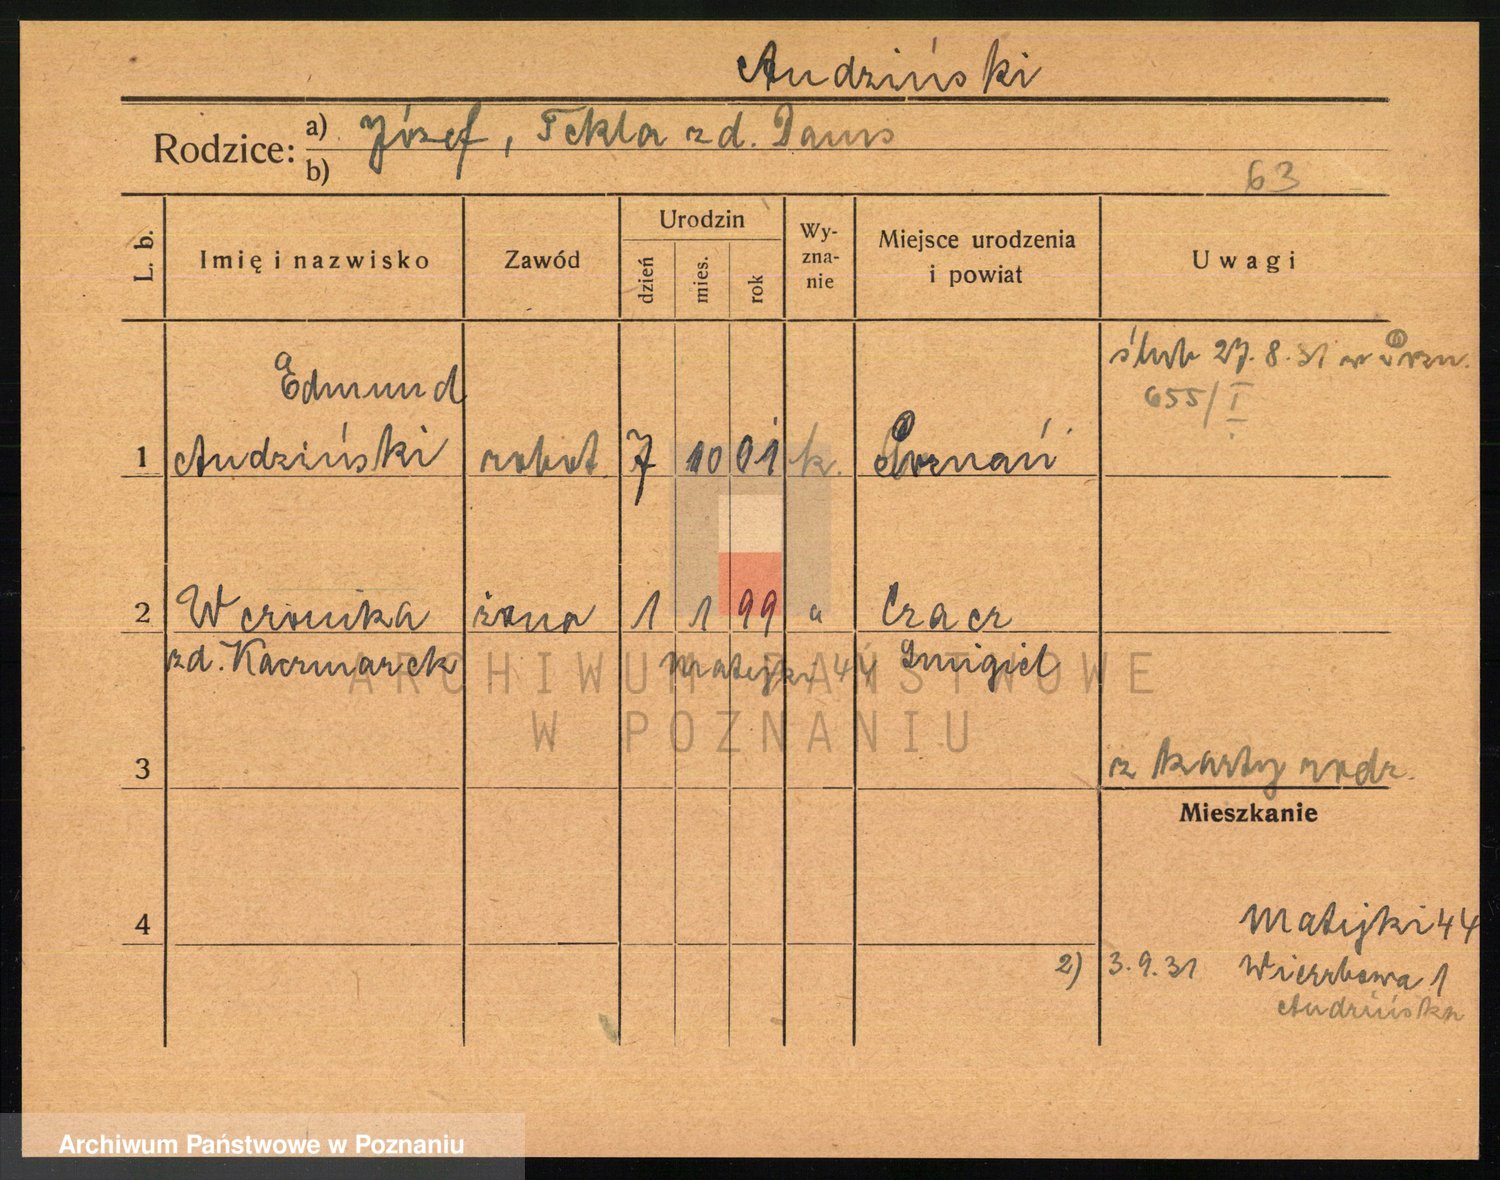 Audziński
Rodzice: a) Józef, Tekla z d. Daws
b)
63
L. b.
Imię i nazwisko
Zawód
Urodzin
dzień
mies.
rok
Wy-
zna-
nie
Miejsce urodzenia
i powiat
Uwagi
ślub 27.8.31 w Pozn.
655/I
Edmund
1 Audziński robot. 7 10 01 k. Poznań
2 Weronika żona 1 1 99 " Czacz
zd. Kaczmarek Matejki 44 Śmigiel
ARCHIWUM PAŃSTWOWE
W POZNANIU
3
z karty rodz.
Mieszkanie
4
Matejki 44
2) 3.9.31 Wierzbowa 1
Audzińska
Archiwum Państwowe w Poznaniu